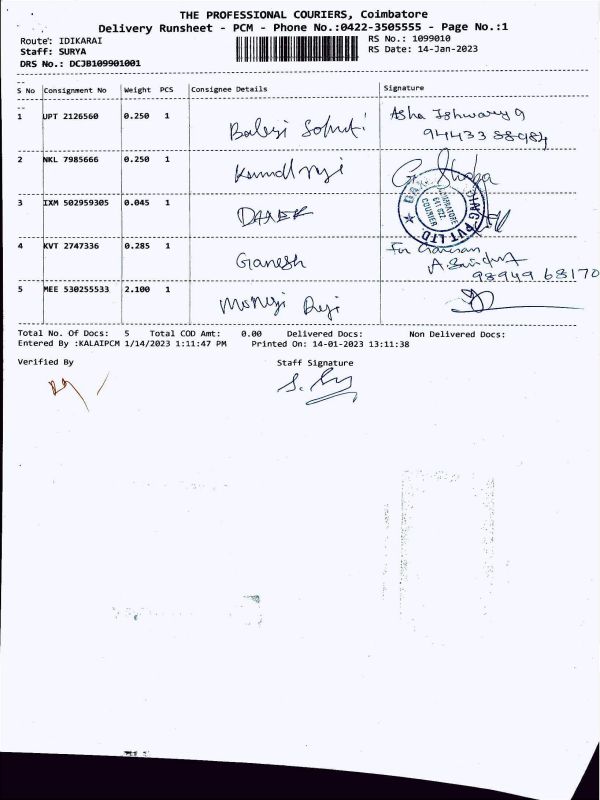 THE PROFESSIONAL COURIERS, Coimbatore
Delivery Runsheet - PCM - Phone No.:0422-3505555 - Page No.:1
Route: IDIKARAI RS No.: 1099010
Staff: SURYA RS Date: 14-Jan-2023
DRS No.: DCJB109901001
S No Consignment No Weight PCS Consignee Details Signature
1 UPT 2126560 0.250 1 Asha Ishwarya
2 NKL 7985666 0.250 1
3 IXM 502959305 0.045 1
4 KVT 2747336 0.285 1 Ganesh For
98949 68170
5 MEE 530255533 2.100 1
Total No. Of Docs: 5 Total COD Amt: 0.00 Delivered Docs: Non Delivered Docs:
Entered By :KALAIPCM 1/14/2023 1:11:47 PM Printed On: 14-01-2023 13:11:38
Verified By Staff Signature